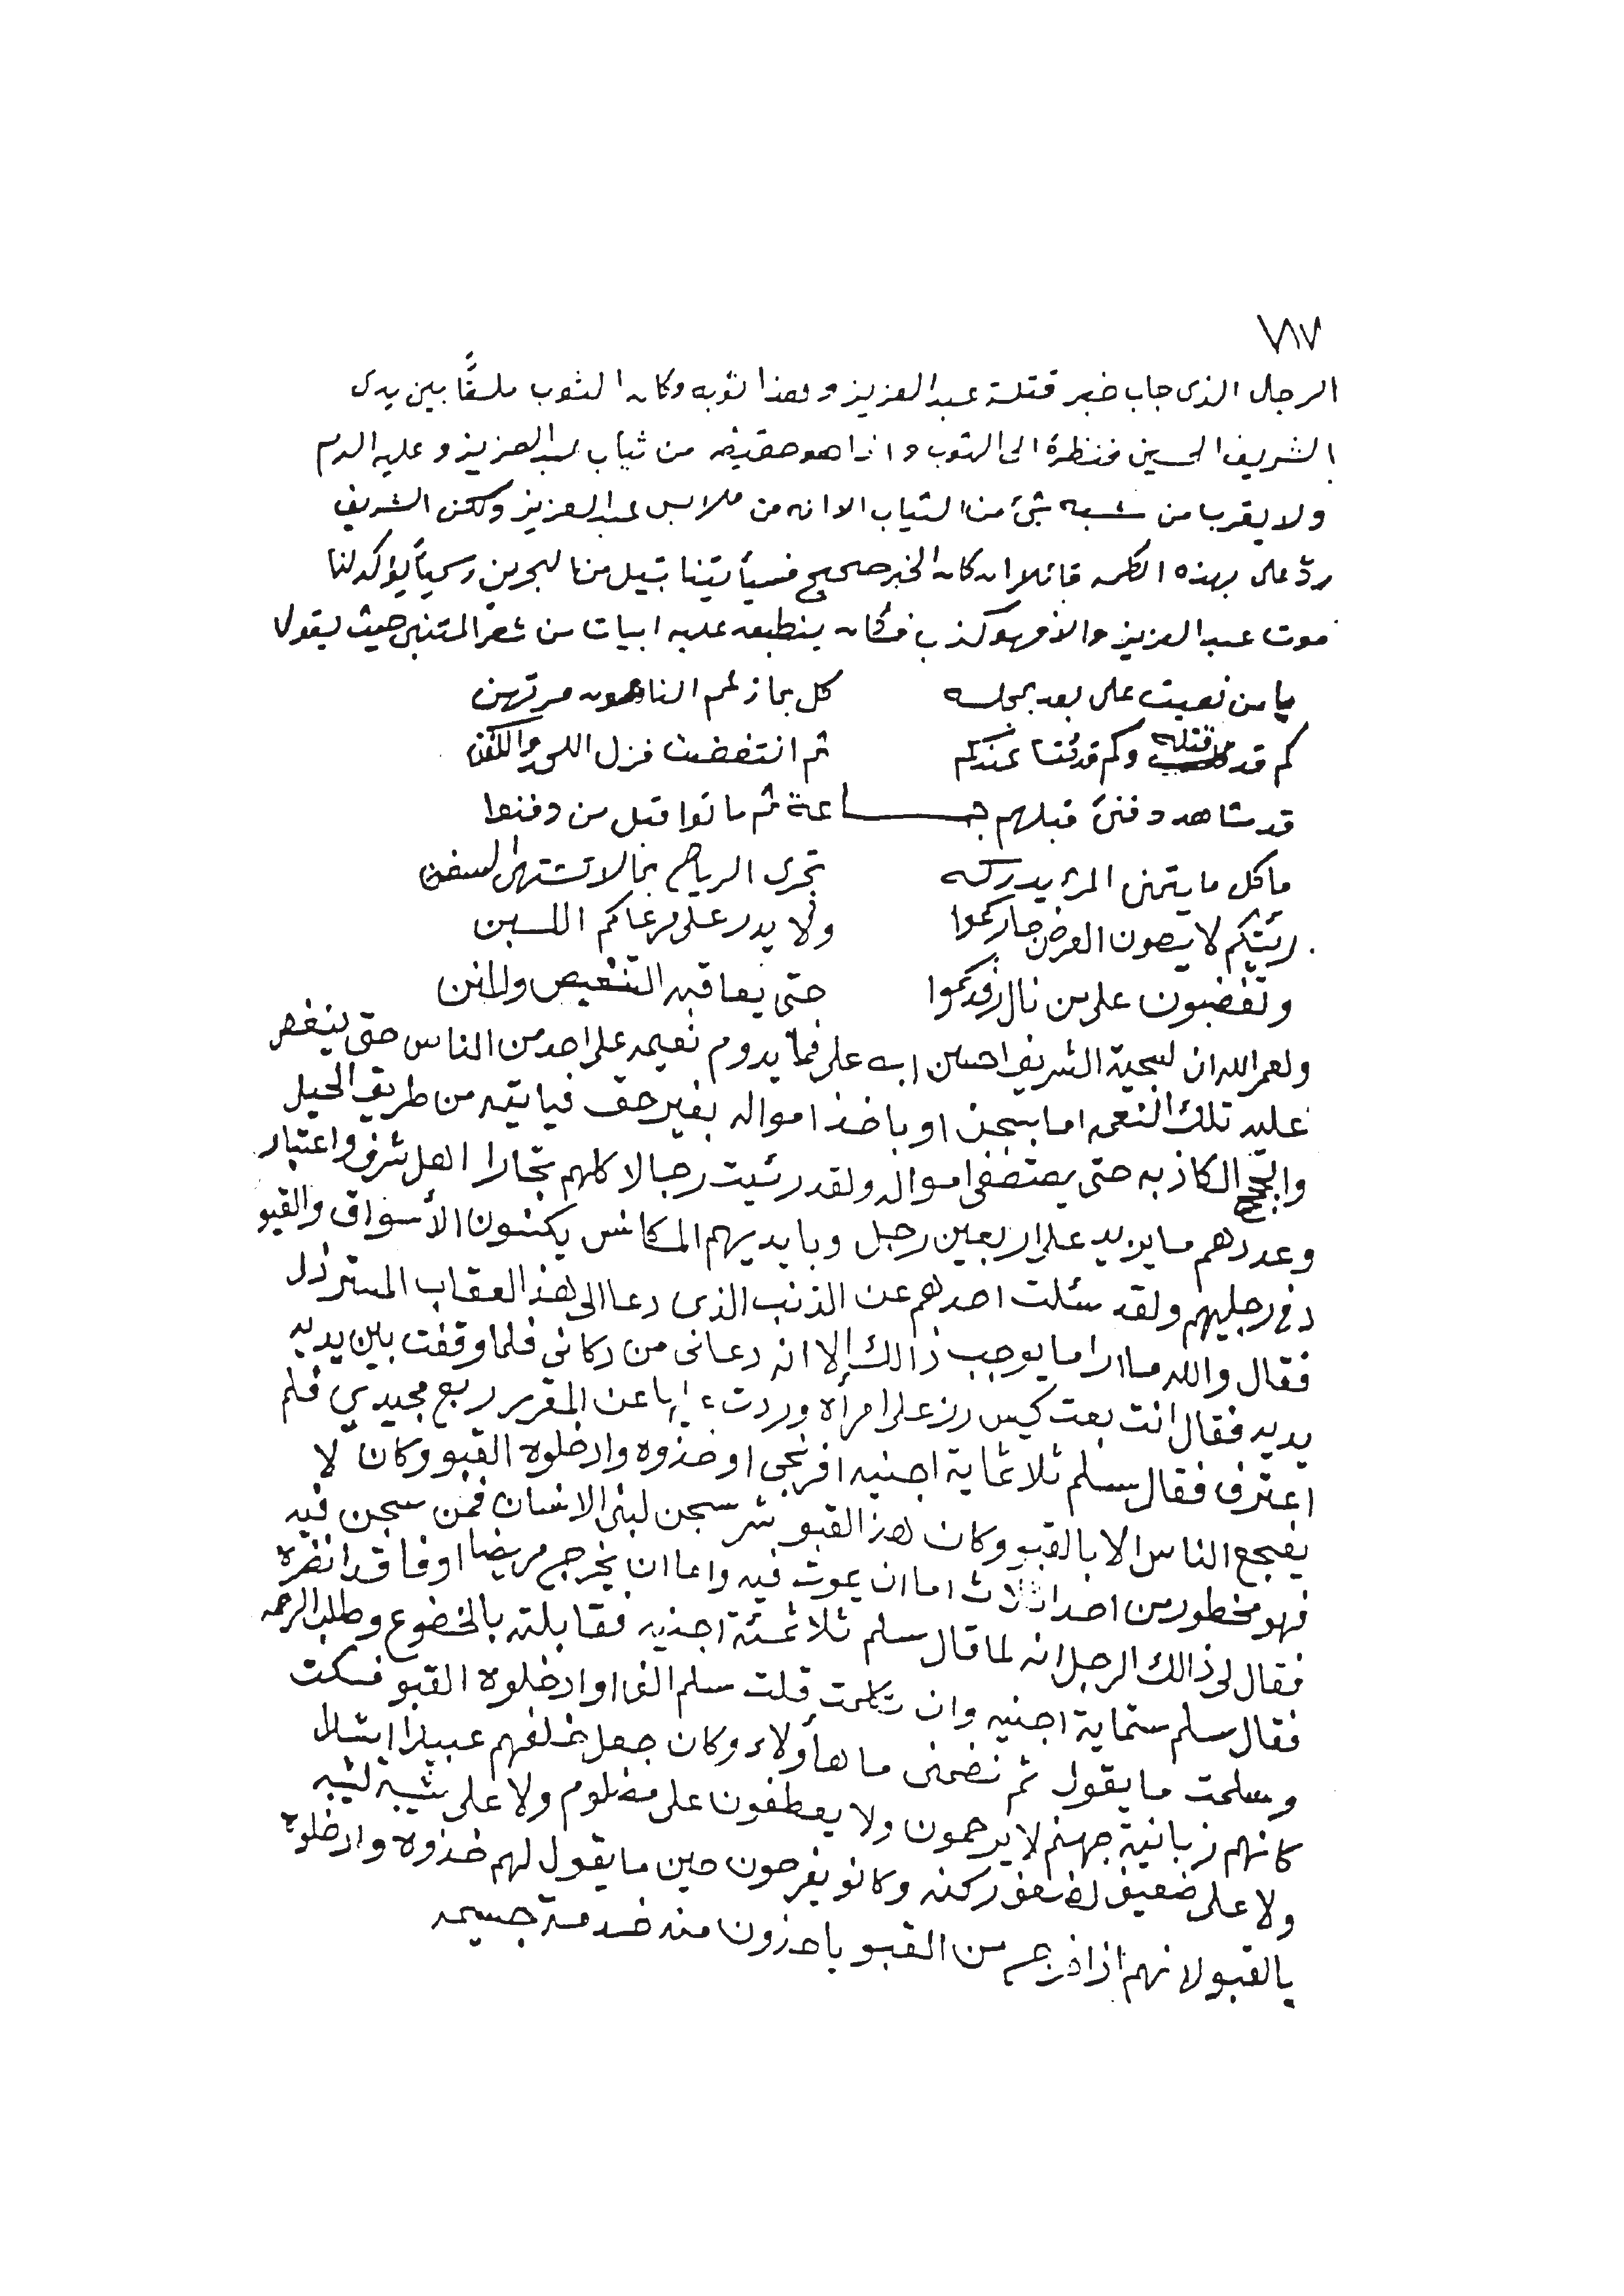 ٧١٧
الرجال الذى جاب خبر قتلة عبد العزيز وهذا ثوبه وكان الثوب ملقًا بين يدى
الشريف الحسين فنظرة الى الثوب واذا هو حقيقه من ثياب عبد العزيز وعليه الدم
ولا يقربا من شبه شئ من الثياب الا انه من ملابس عبد العزيز ولكن الشريف
ردّ على بهذه الكلمه قائلا ان كان الخبر صحيح فسيأتينا تيل من البحرين رسمياً يؤكد لنا
موت عبد العزيز والا فهو كذب فكان ينطبعه عليه ابيات من شعر المتنبى حيث يقول
يا من نعيت على بعد بمجلسه كل بما زعم الناعون مرتهن
كم قد قتلت وكم قد متّ عندكم ثم انتفضت فزل اللحد والكفن
قد شاهد دفنى قبلهم جماعة ثم ماتوا قبل من دفنوا
ما كل ما يتمنى المرء يدركه تجرى الرياح بما لا تشتهى السفن
رئيتكم لا يصون العرض جاركموا ولا يدر على مرعاكم اللبن
وتغضبون على من نال رفدكموا حتى يعاقبه التنغيص والمنن
ولعمر الله ان لسجية الشريف احسين ابن على فما يدوم نعيمه على احد من الناس حتى ينغص
عليه تلك النعمه اما بسجن او باخذ امواله بغير حق فياتيه من طريق الحيل
والحجج الكاذبه حتى يصتصفى امواله ولقد رئيت رجالا كلهم تجارا اهل شرف واعتبار
وعددهم ما يزيد على اربعين رجل وبايديهم المكانس يكنسون الأسواق والقيو
د فى رجليهم ولقد سئلت احدهم عن الذنب الذى دعا الى هذ العقاب المسترذل
فقال والله ما ارا ما يوجب ذالك إلا انه دعانى من دكانى فلما وقفت بين يديه
يديه فقال انت بعت كيس رز على امرأه وزدت عليها عن المقرر ربع مجيدي فلم
اعترف فقال سلم ثلاثماية اجنيه افرنجى او خذوه وادخلوه القبو وكان لا
يفجع الناس الا بالقبو وكان هذ القبو شر سجن لبنى الانسان فمن سجن فيه
فهو مخطور من احدا ثلاث اما ان يموت فيه واما ان يخرج مريضا او فاقدا نضره
فقال لى ذالك الرجل انه لما قال سلم ثلاثمئة اجنيه فقابلته بالخضوع وطلب الرحمه
فقال سلم ستماية اجنيه وان تكلمت قلت سلم الف او ادخلوه القبو فسكت
وسلمت ما يقول ثم نضمنى ما هأولاء وكان جعل خلفهم عبيدا
كانهم زبانية جهنم لا يرحمون ولا يعطفون على مضلوم ولا على شيبة لشيبه
ولا على ضعيف لضعف ركنه وكانو يفرحون حين ما يقول لهم خذوه وادخلوه
بالقبو لانهم اذا خرج من القبو ياخذون منه خدمة جسيمه